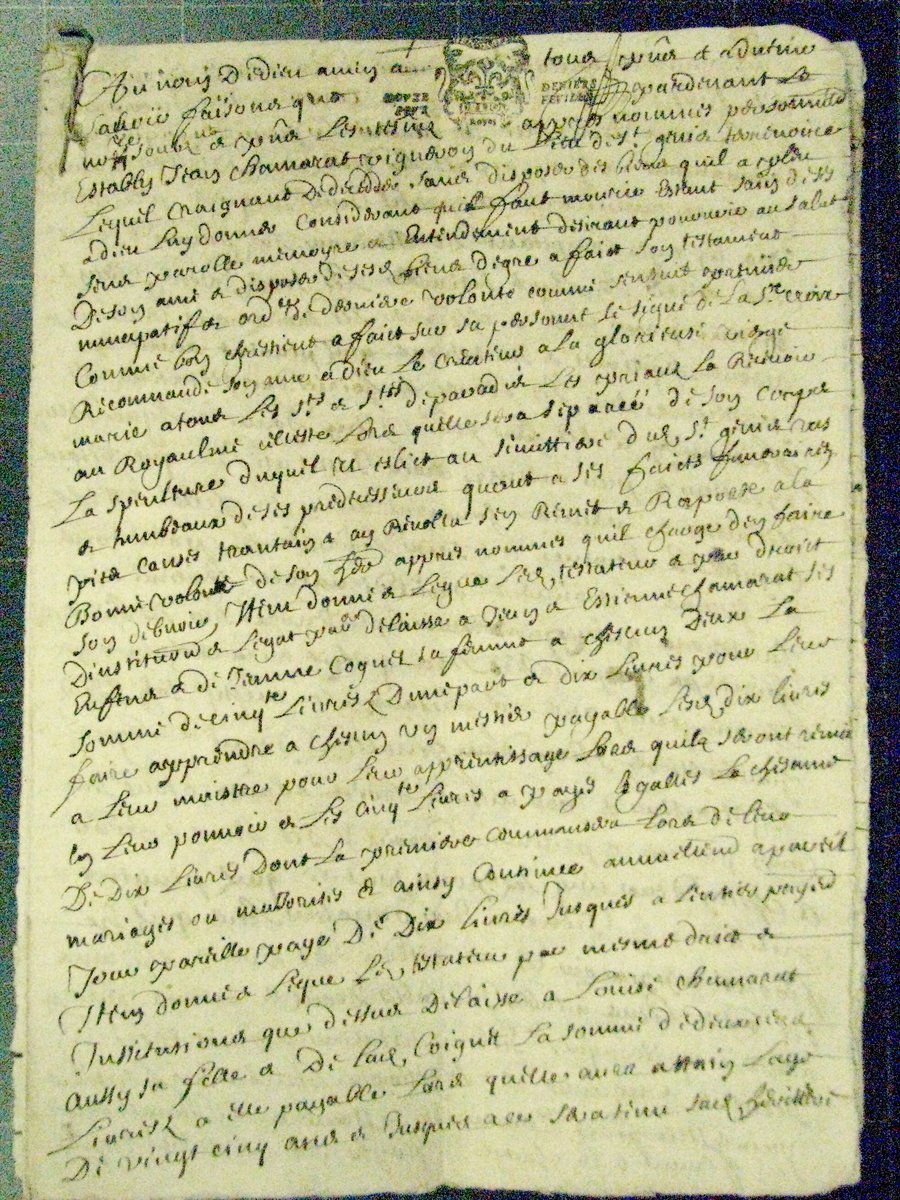 Au nom de dieu amen a tous pñs et advenir
DOUZE DENIERS
FEUILLE
Savoir faisons que pardevant le
nore soubzne et pñs les tesmoins appres nommes personnelle
Estably Jean Chamarat vigneron du lieu de st genis terrenoire
Lequel craignant de decedder sans disposer des biens quil a pleu
a dieu luy donner considerant quil faut mourir Estant sain de ses
sens parolle memoyre et Entendement desirant pourvoir au salut
De son ame et disposer de ses biens de gre a faict son testament
nuncupatif et ordce de derniere volonte comme sensuit premier
Comme bon chrestient a faict sur sa personne le signe de la Ste croix
Recommandé son ame a dieu le createur a la glorieuse vierge
marie a tous les Sts et Stes de paradis Les priant la Recevoir
au Royaulme celleste Lors quelle sera separéé de son corps
La sepulture duquel il eslict au simettiere dud St genis
et tumbeaux de ses predecesseurs quant a ses faicts funeraires
pies causes trantain et au Revollu sen Remet et Raporte a la
Bonne volonte de son her appres nommes quil charge den faire
son debvoir Item donne et Legue led testateur et par droict
Dinstitution et Legat par delaisse a Jean et Estienne Chamarat ses
Enfens et de Jeanne Coignet sa femme a chescun deux La
somme de cinqte livres Dune part et dix Livres pour Leur
faire apprendre a chescun un mestier payable lesd dix livres
a leur maistre pour leur apprentissage Lors quils seront remis
en Leur pouvoir et les cinqte Livres a payes Egalles La chescune
De Dix Livres dont la premiere commancera Lors de leur
mariages ou mallorites et ainsy continuer annuellemt a pareil
Jour pareille paye De Dix Livres Jusques a lentier payed
Item donne et Legue Led testateur par mesme droict et
Institutions que dessus delaisse a Louise Chamarat
aussy sa fille et De lad Coignet La somme de deux cens
Livres a elle payable Lors quelle aura attain Lage
De vingt cinq ans et Jusques a ce sera tenu sad heritiere